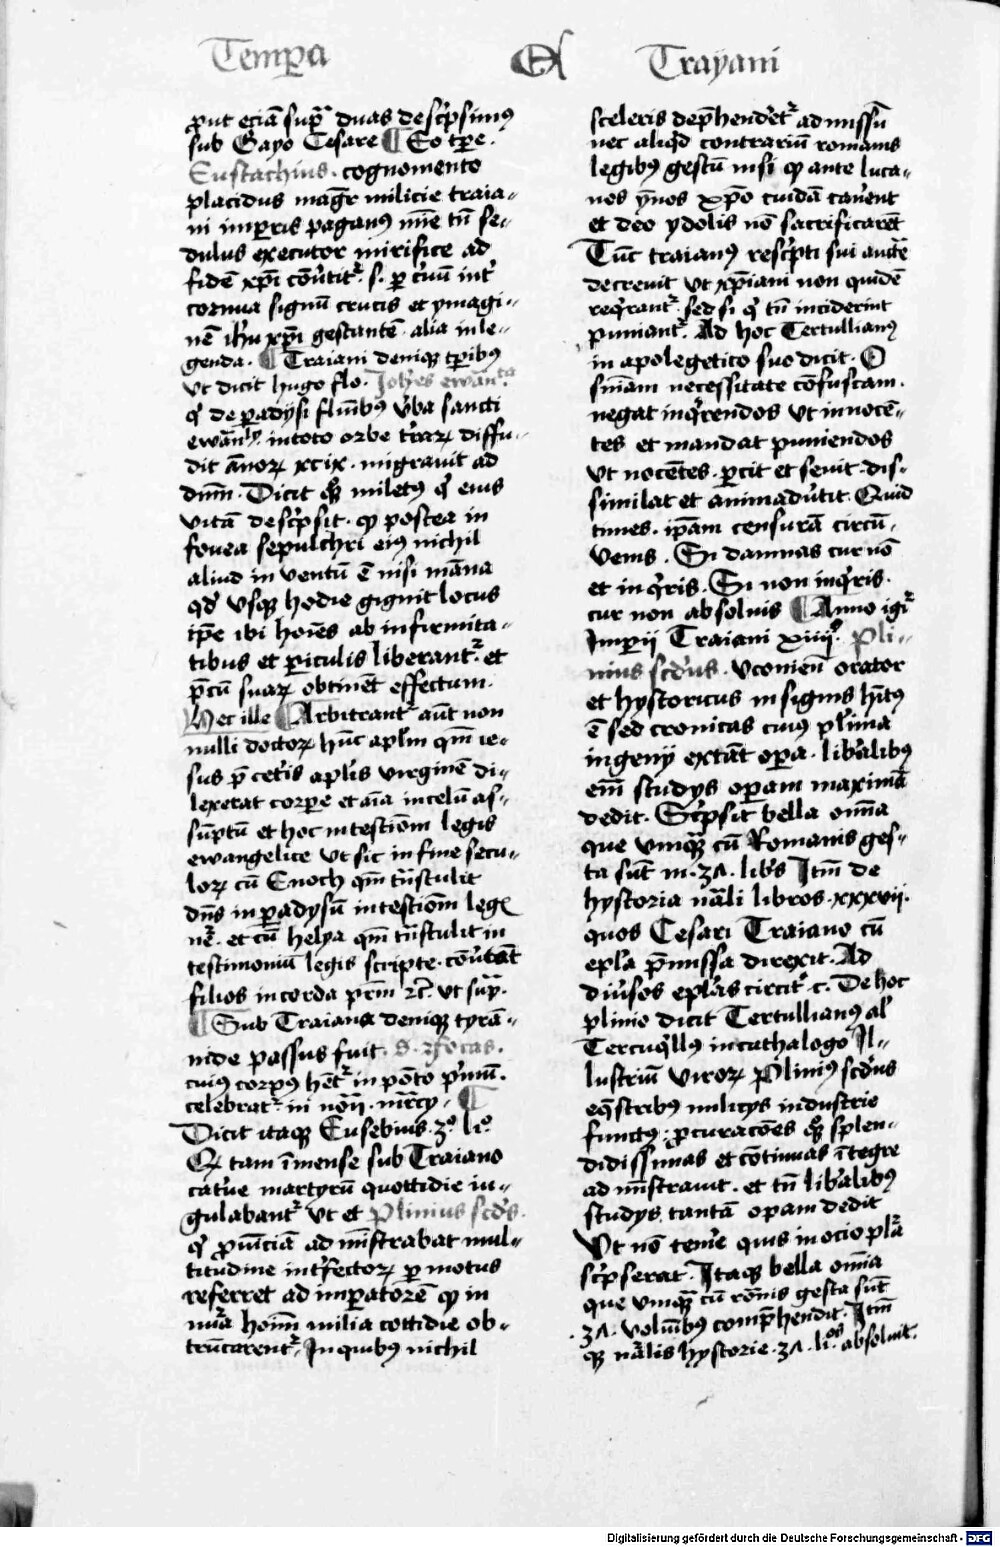 Tempa Et Trayani
put eciã supra duas descpsimus
sub Gayo Cesare ¶ Eo tpe.
Eustachius. cognomento
placidus magr milicie traia-
ni imperis paganus mie tñ se-
dulus executor mirifice ad
fidẽ xpi cõutitr. s. p cuũ int
cornua signũ crucis et ymagi-
nẽ ihu xpi gestantẽ. alia in le-
genda. ¶ Traiani deniq tpibus
ut dicit hugo flo. Johes ewanta
q de padysi fluibus uba sancti
ewanly in toto orbe trar diffu-
dit ãnor xcix. migravit ad
dnm. Dicit q miletus q eius
vitã descpsit. q postea in
fovea sepulchri eius nichil
aliud in ventũ ẽ nisi mãna
qd usq hodie gignit locus
ipe ibi hoies ab infirmita-
tibus et piculis liberantr. et
pcũ suar obtinet effectum.
Hec ille ¶ Arbitrantr aut non
nulli doctor hũc aplm qm ie-
sus p cetis aplis virginẽ di-
lexerat corpe et aia in celũ as-
sũptũ et hoc in testiom legis
ewangelice ut sic in fine secu-
lor cũ Enoch qm tnstulit
dns in padysũ in testiom leg
nẽ. et cũ helya qm tnstulit in
testimoniũ legis scripte. cõutat
filios in corda prm rc. ut sup.
¶ Sub Traiana deniq tyrã-
nide passus fuit. S. Focas.
cuius corpus hẽtr in ponto pmũ.
celebratr in non. mercy. ¶
Dicit itaq Eusebius. 3o. lio.
Q tam imense sub Traiano
catue martyrũ quottidie iu-
gulabantr ut et Plinius scds.
q puiciã ad mistrabat mul-
titudine intfector p motus
referret ad impatorẽ q in
nua hoim milia cottidie ob-
trũcarentr. In quibus nichil
sceleris dephendetr admissũ
nec aliqd contrariũ romanis
legibus gestũ nisi q ante luca-
nos ynos xpo cuidã canent
et deo ydolis nõ sacrificaret
Tũc traianus rescpti sui aucte
decrevit ut xpiani non quidẽ
reqrantr. sed si q tñ inciderint
puniantr. Ad hoc Tertullianus
in apolegetico suo dicit. O
sniam necessitate cõfuscam.
negat inqrendos ut innocẽ-
tes et mandat puniendos
ut nocẽtes. pcit et sevit. dis-
similat et animadutit. Quid
times. ipam censurã circũ-
venis. Si damnas cur nõ
et inqris. Si non inqris.
cur non absoluis ¶ Anno igr
Imperii Traiani xiiiio. Pli-
nius scdus. uconien orator
et hystoricus insignis hitus
ẽ sed cronicas cuius plima
ingeny extãt opa. libalibus
em studys operam maximã
dedit. Scpsit bella omia
que umq cũ Romanis ges-
ta sũt in. 3Λ. libs Itm de
hystoria nãli libros. xxxvii.
quos Cesari Traiano cũ
epla pmissa direxit. Ad
diusos eplas circit. c. De hoc
plinio dicit Tertullianus al
Tercuqllus in cathalogo Il-
lustriũ viror Plinius scdus
eqstribus milicys industrie
functus. pcuracões q splen-
didissimas et cõtinuas itegre
ad mistravit. et tñ libalibus
studys tantã opam dedit
Ut nõ teme quis in ocio pla
scpserat. Itaq bella omia
que umq cũ rõnis gesta sũt
.3Λ. volibus comphendit. Itm
q nalis hystorie. 3Λ. lios absoluit.
Digitalisierung gefördert durch die Deutsche Forschungsgemeinschaft - DFG